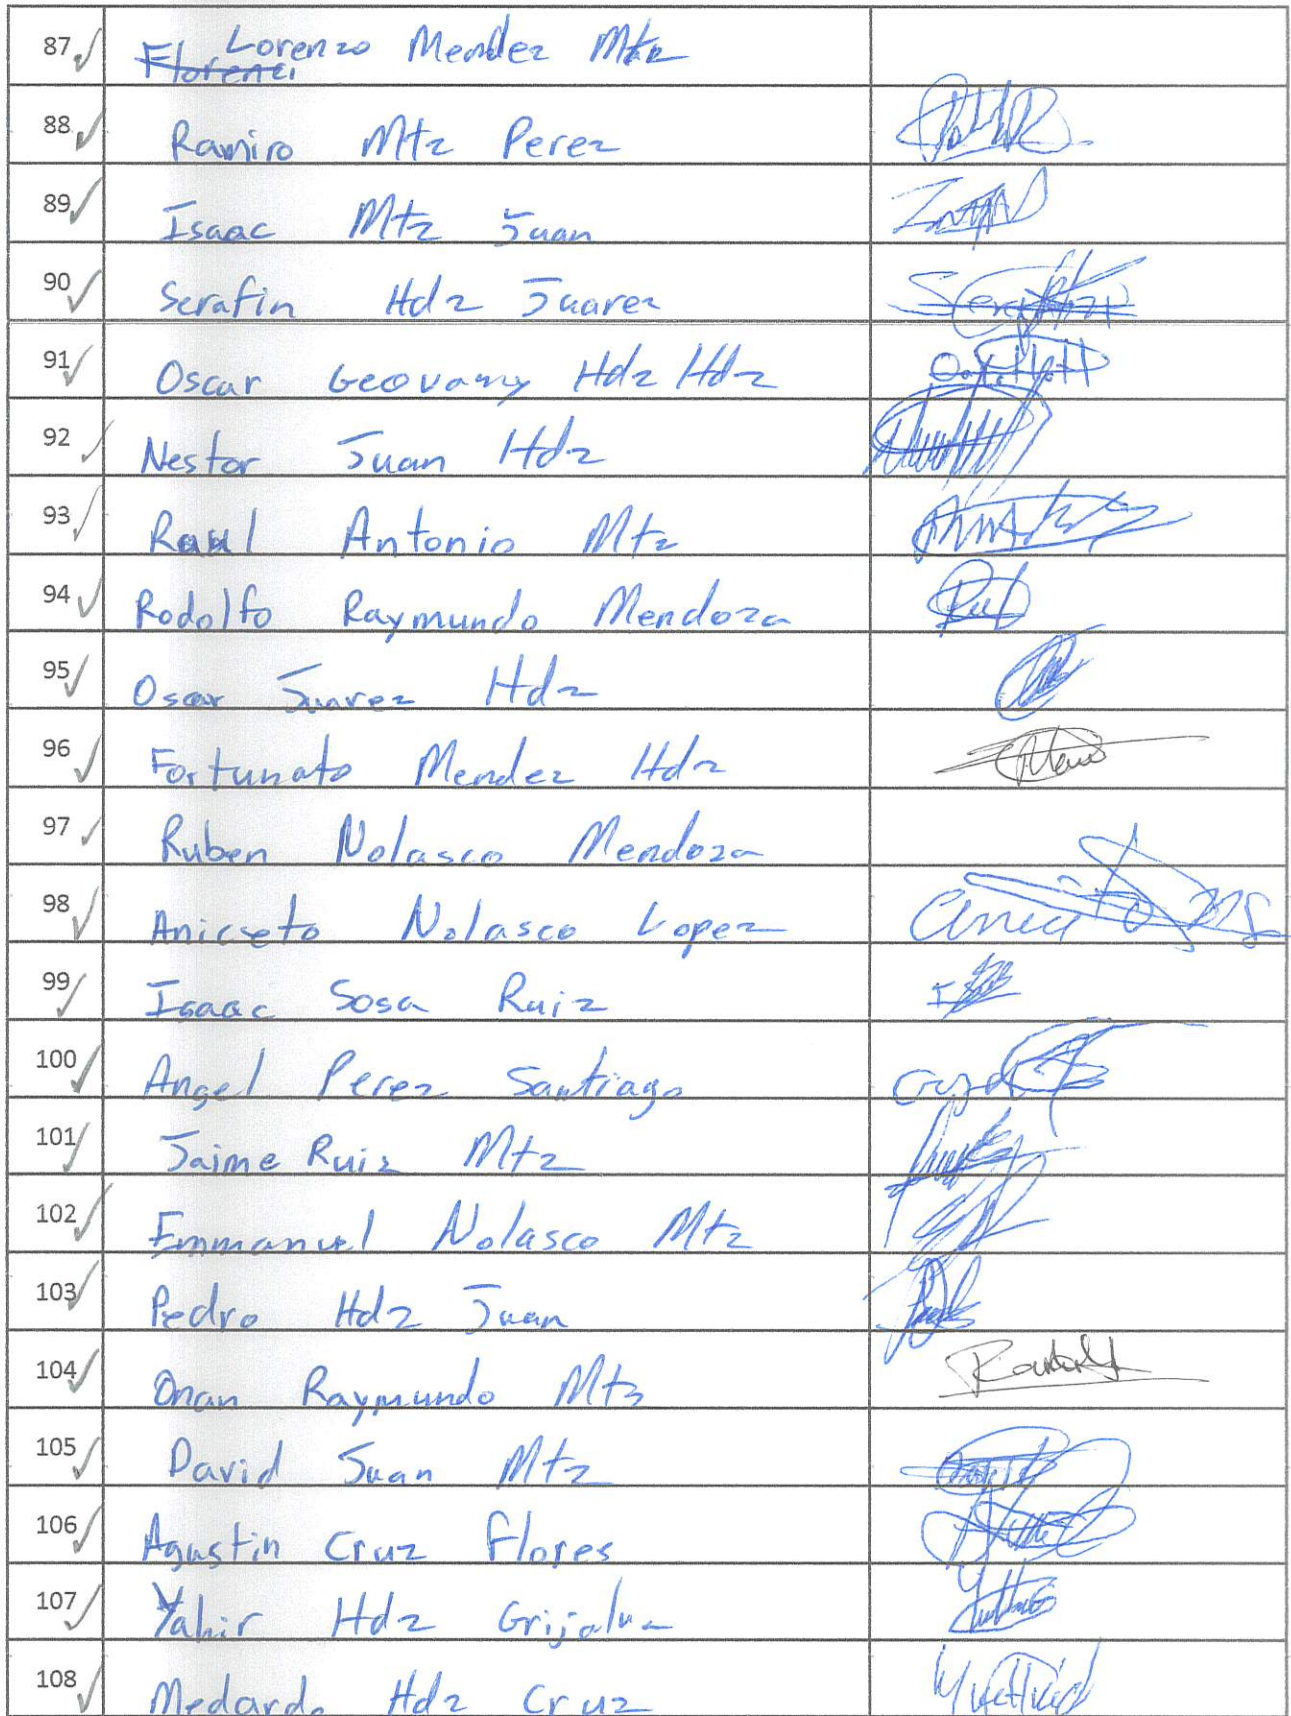 87 Lorenzo Mendez Mtz
Florenci
88 Ramiro Mtz Perez
89 Isaac Mtz Juan
90 Serafin Hdz Juarez
91 Oscar Geovany Hdz Hdz
92 Nestor Juan Hdz
93 Raul Antonio Mtz
94 Rodolfo Raymundo Mendoza
95 Oscar Juarez Hdz
96 Fortunato Mendez Hdz
97 Ruben Nolasco Mendoza
98 Aniceto Nolasco Lopez
99 Isaac Sosa Ruiz
100 Angel Perez Santiago
101 Jaime Ruiz Mtz
102 Emmanuel Nolasco Mtz
103 Pedro Hdz Juan
104 Onan Raymundo Mtz
105 David Juan Mtz
106 Agustin Cruz Flores
107 Yahir Hdz Grijalva
108 Medardo Hdz Cruz